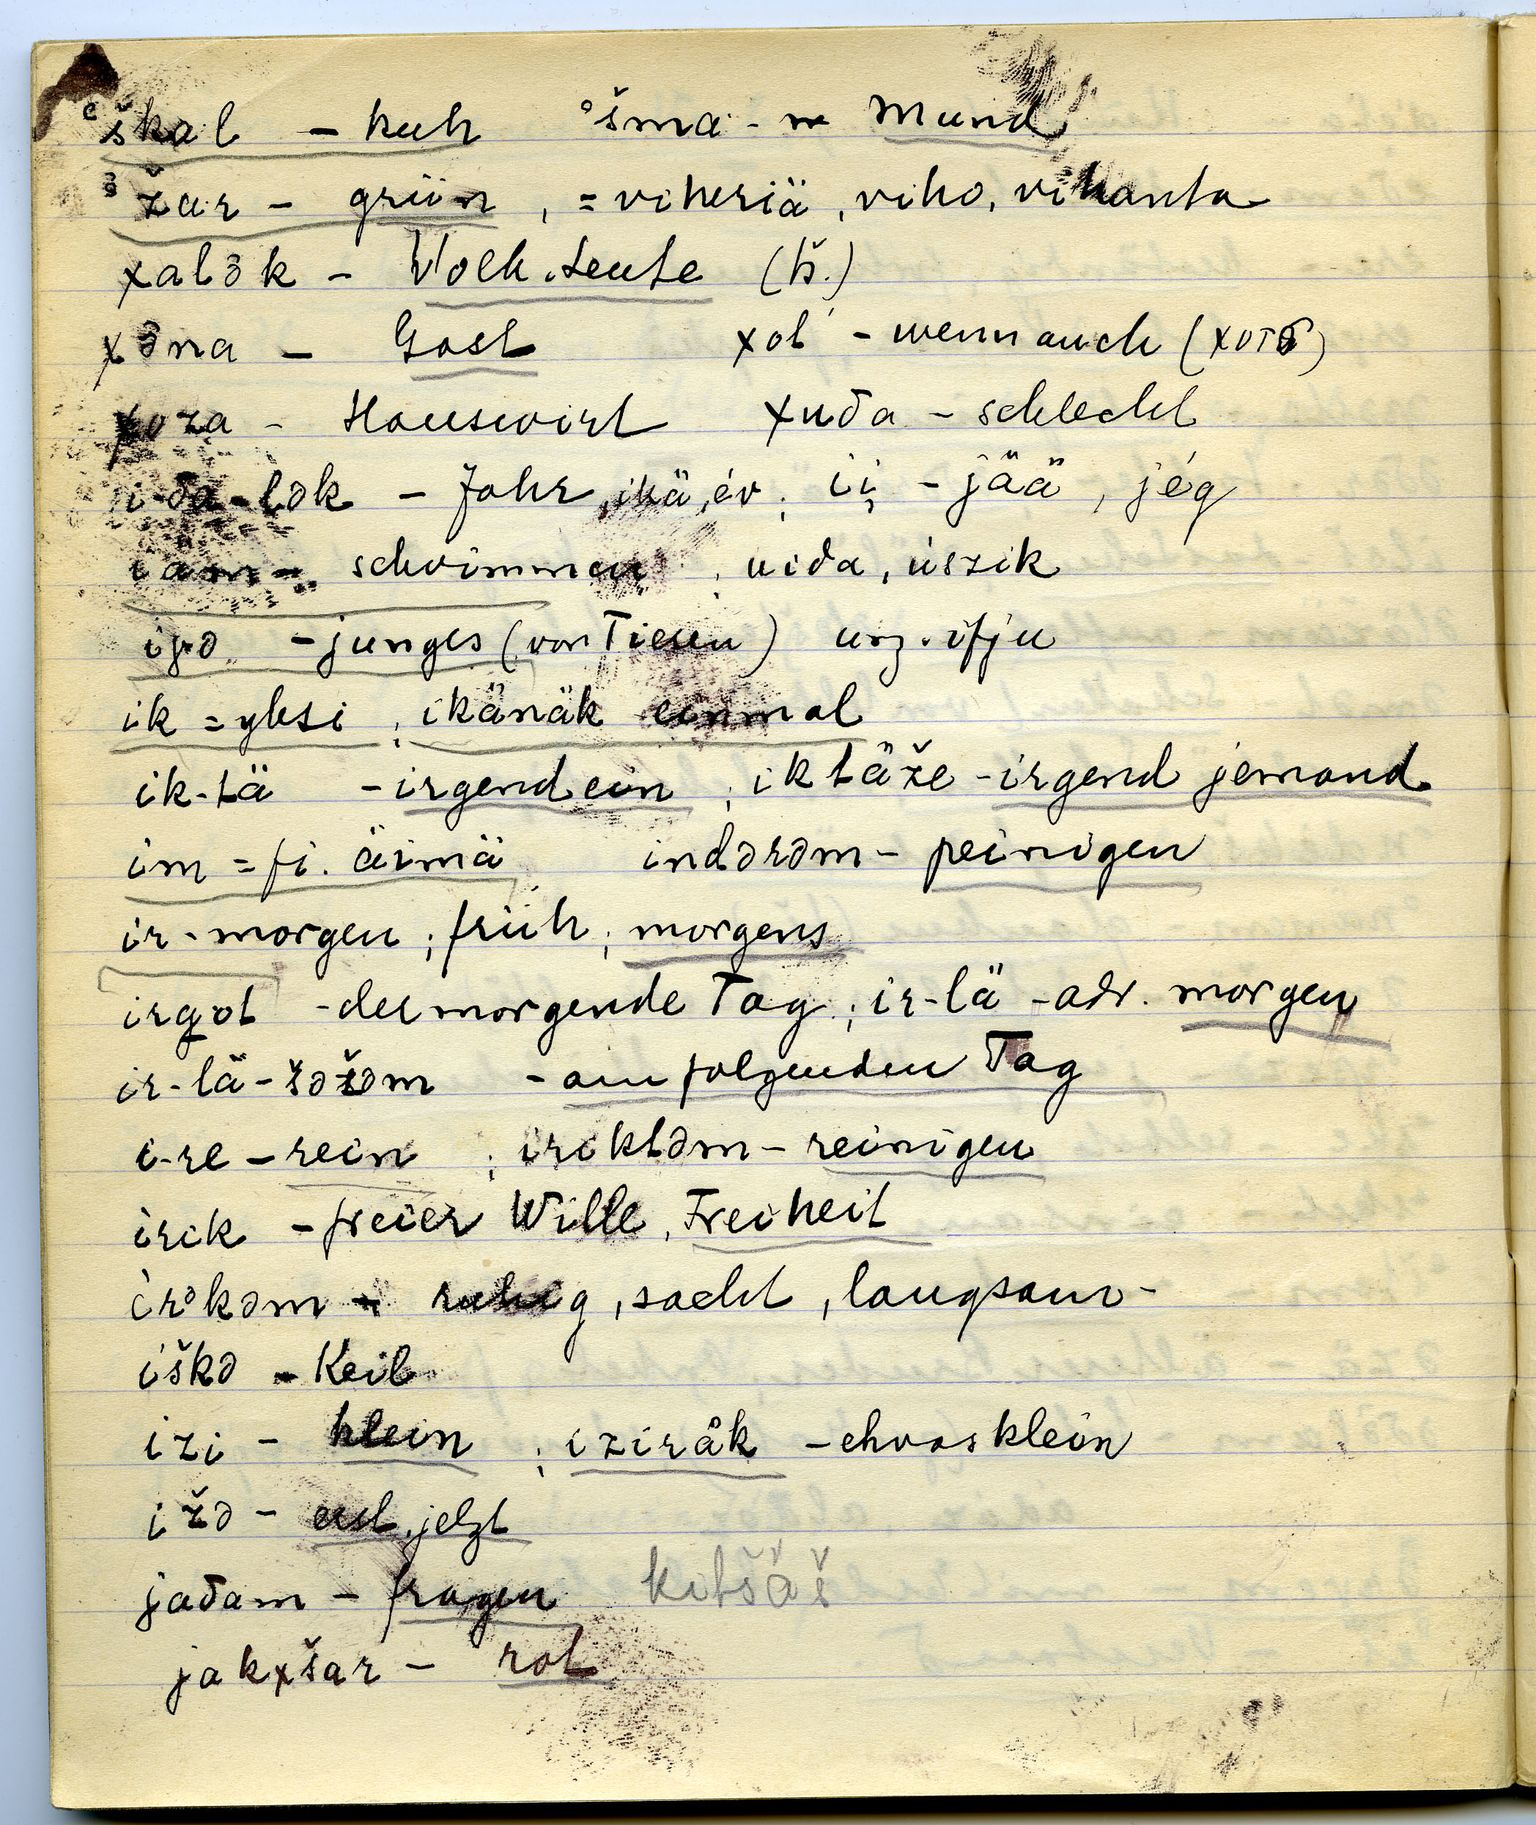 ᵊškal – kuh ᵊšma - Mund
ᵊžar – grün, = viheriä, viho, vihanta
χalək – Volk. Leute (tš.)
χəna – Gast χot' – wenn auch (хоть)
χoza – Hauswirt χuδa – schlecht
i-δa-lək – Jahr, ikä, év; ii̭ – jää, jég
iäm – schvimmen; uida, úszik
iγə – junges (von Tieren) ung. ifju
ik = yksi; ikänäk einmal
ik-tä – irgend ein; iktäže – irgend jemand
im = fi. äimä indərəm – peinigen
ir – morgen; früh; morgens
irgot – der morgende Tag; ir-lä – adv. morgen
ir-lä-šəžəm – am folgenden Tag
i-re – rein; iriktəm – reinigen
irik – freier Wille, Freiheit
irᵊkəm – ruhig, sacht, langsam –
iškə – Keil
izi – klein; iziråk – etwas klein
ižə – erst, jetzt
jaδam – fragen kitšäš
jakχšar – rot